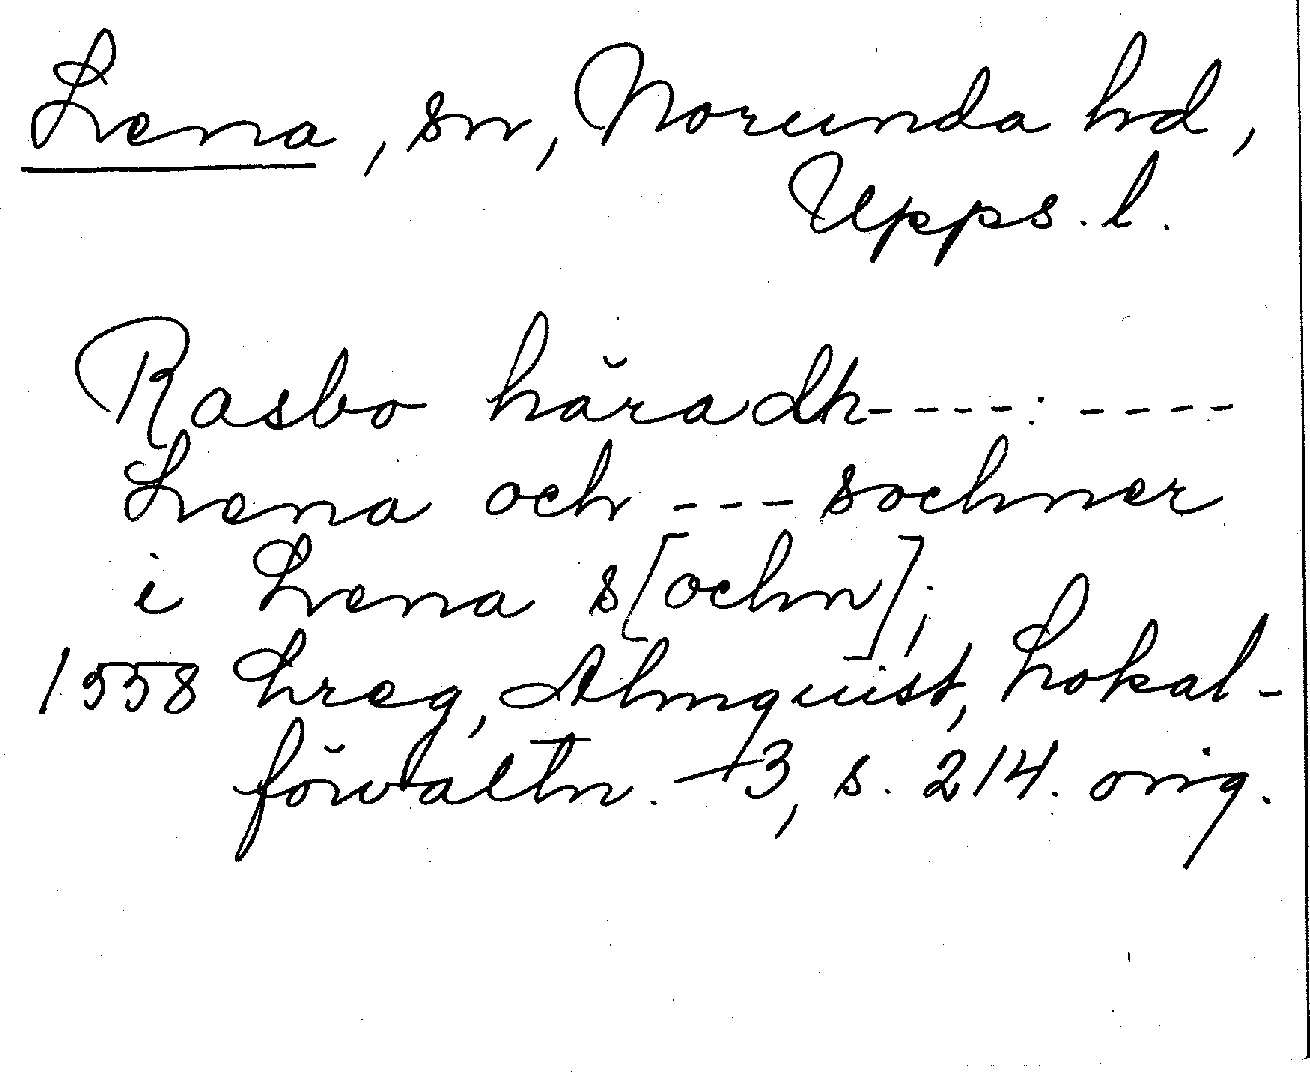 Lena, sn, Norunda hd,
Upps. l.
Rasbo häradh----: ----
Lena och --- sochner
i Lena s[ochn];
1558 Lreg, Almquist, Lokal-
förvaltn. 3, s. 214. orig.